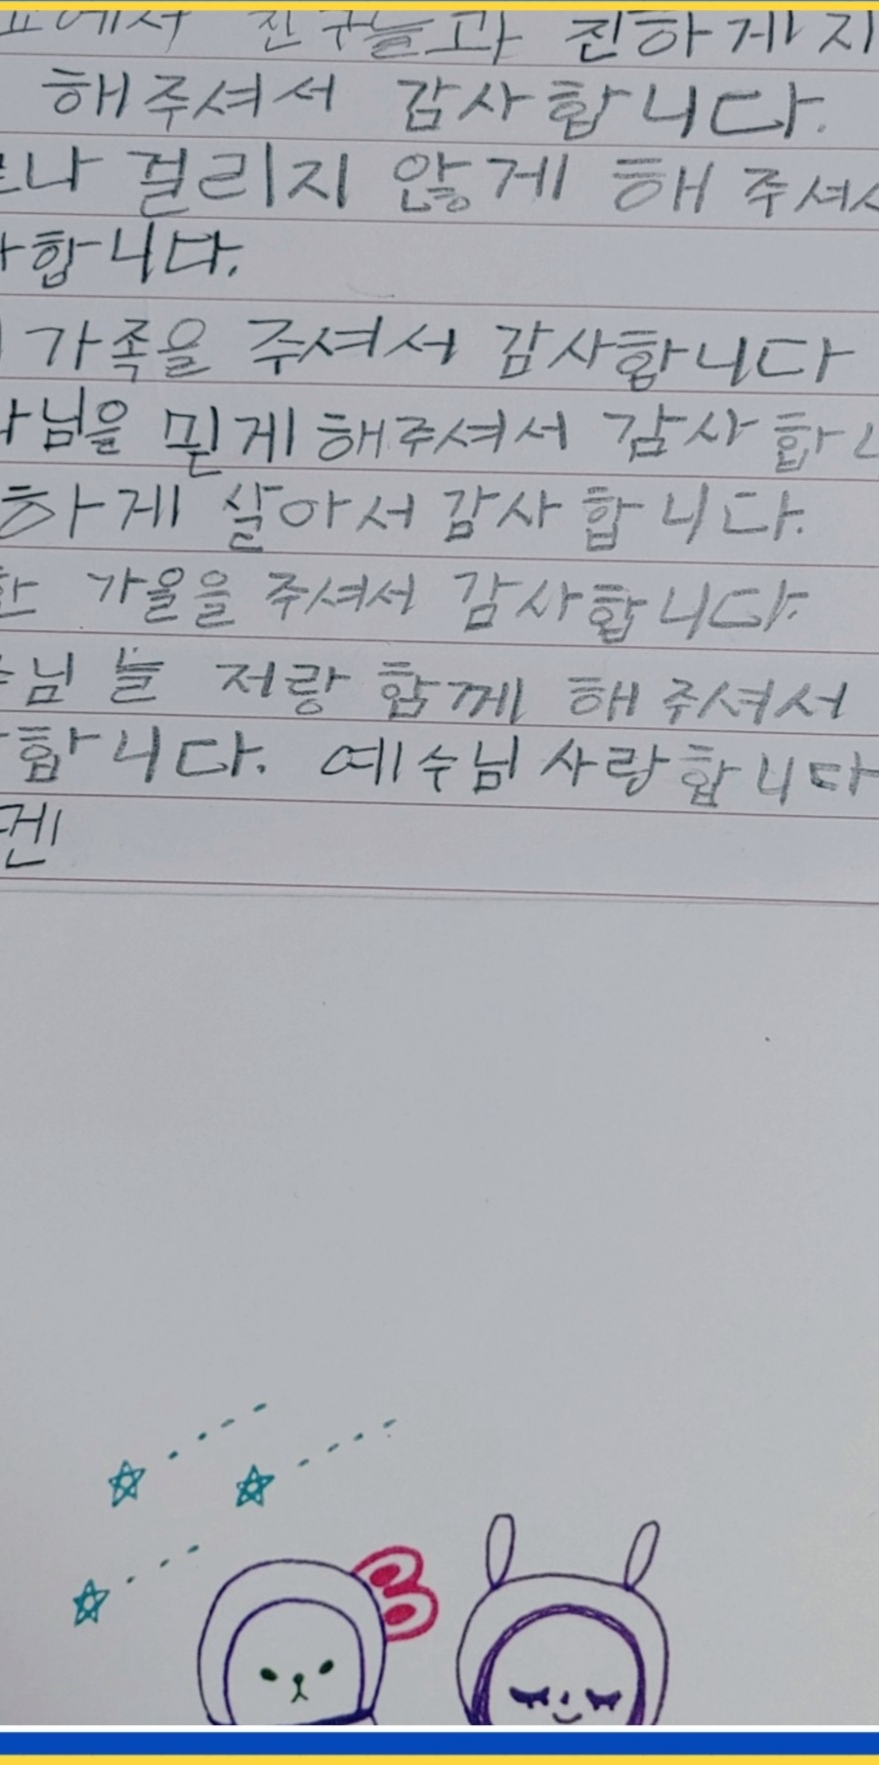 친구들과 친하게 지
해주셔서 감사합니다.
나 걸리지 않게 해 주셔서
합니다.
가족을 주셔서 감사합니다
님을 믿게 해주셔서 감사합니
하게 살아서 감사합니다.
한 가을을 주셔서 감사합니다.
님 늘 저랑 함께 해주셔서
합니다. 예수님 사랑합니다
멘